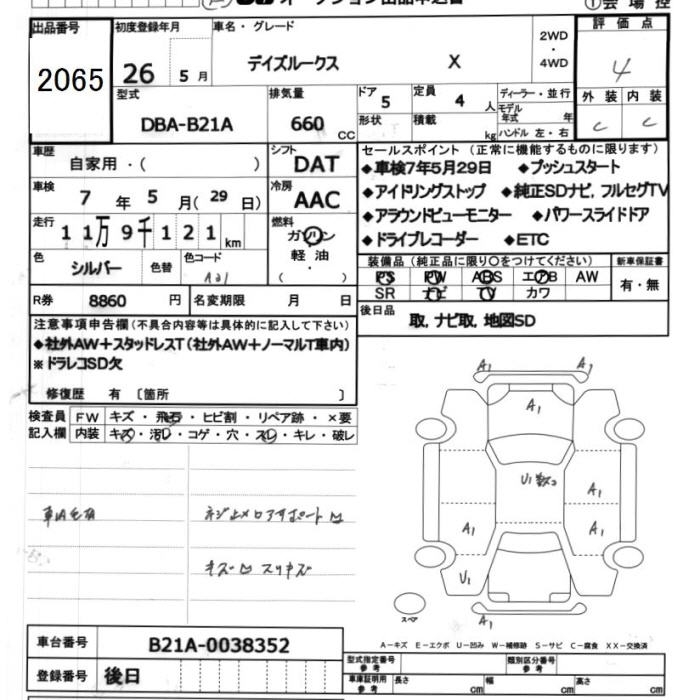 オークション出品申込書
①会場控
出品番号 初度登録年月 車名・グレード 2WD・4WD 評価点
2065 26 5月 デイズルークス X 4
型式 排気量 ドア 5 定員 4 人 ディーラー・並行 外装 内装
DBA-B21A 660 CC 形状 積載 kg モデル年式 年 C C
ハンドル 左・右
車歴 自家用・( ) シフト DAT セールスポイント(正常に機能するものに限ります)
車検 7年 5月(29日) 冷房 AAC ◆車検7年5月29日 ◆プッシュスタート
走行 11万9千121km 燃料 ガソリン 軽油・( ) ◆アイドリングストップ ◆純正SDナビ,フルセグTV
◆アラウンドビューモニター ◆パワースライドドア
◆ドライブレコーダー ◆ETC
色 シルバー 色替 色コード A21 装備品(純正品に限り○をつけてください) 新車保証書
PS PW ABS エアB AW 有・無
SR ナビ TV カワ
R券 8860 円 名変期限 月 日
後日品 取,ナビ取,地図SD
注意事項申告欄(不具合内容等は具体的に記入して下さい)
◆社外AW+スタッドレスT(社外AW+ノーマルT車内)
※ドラレコSD欠
修復歴 有 〔箇所 〕
検査員記入欄 FW キズ・飛石・ヒビ割・リペア跡・×要
内装 キズ・汚レ・コゲ・穴・スレ・キレ・破レ
A1 A1
A1
U1 数コ A1
A1 A1
U1
A1
スペア
キズ凹スリキズ
A-キズ E-エクボ U-凹み W-補修跡 S-サビ C-腐食 XX-交換済
車台番号 B21A-0038352
登録番号 後日
型式指定番号 参考 類別区分番号 参考
車庫証明用 参考 長さ cm 幅 cm 高さ cm